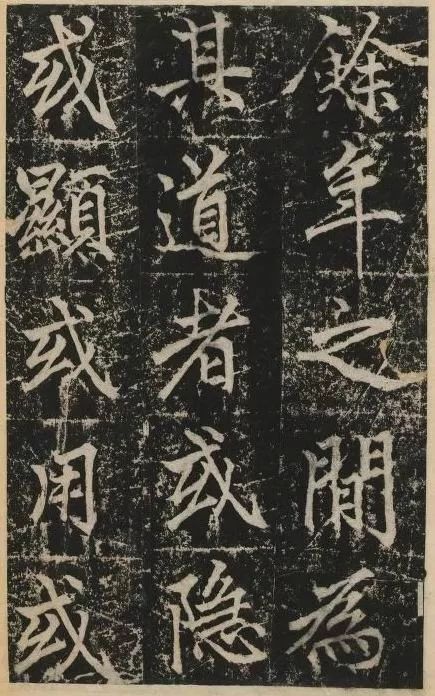 餘年之間為
其道者或隐
或顯或用或